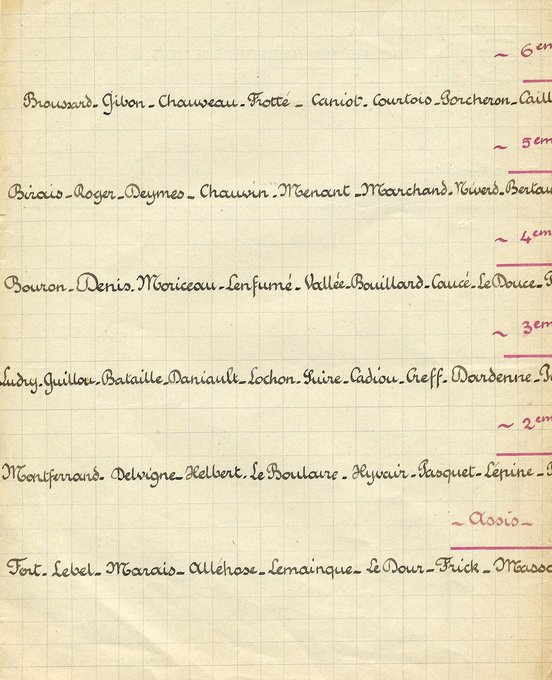 ~ 6em
Broussard - Gibon - Chauveau - Frotté - Caniot - Courtois - Porcheron - Caill
~ 5em
Birais - Roger - Deymes - Chauvin - Menant - Marchand - Niverd - Bertau
~ 4em
Bouron - Denis - Moriceau - Lenfumé - Vallée - Bouillard - Caucé - Le Douce -
~ 3em
Ludry - Guillou - Bataille - Daniault - Lochon - Suire - Cadiou - Creff - Dardenne -
~ 2em
Montferrand - Delvigne - Helbert - Le Boulaire - Hyvair - Pasquet - Lépine -
~ Assis ~
Fort - Lebel - Marais - Alléhose - Lemainque - Le Dour - Frick - Masso